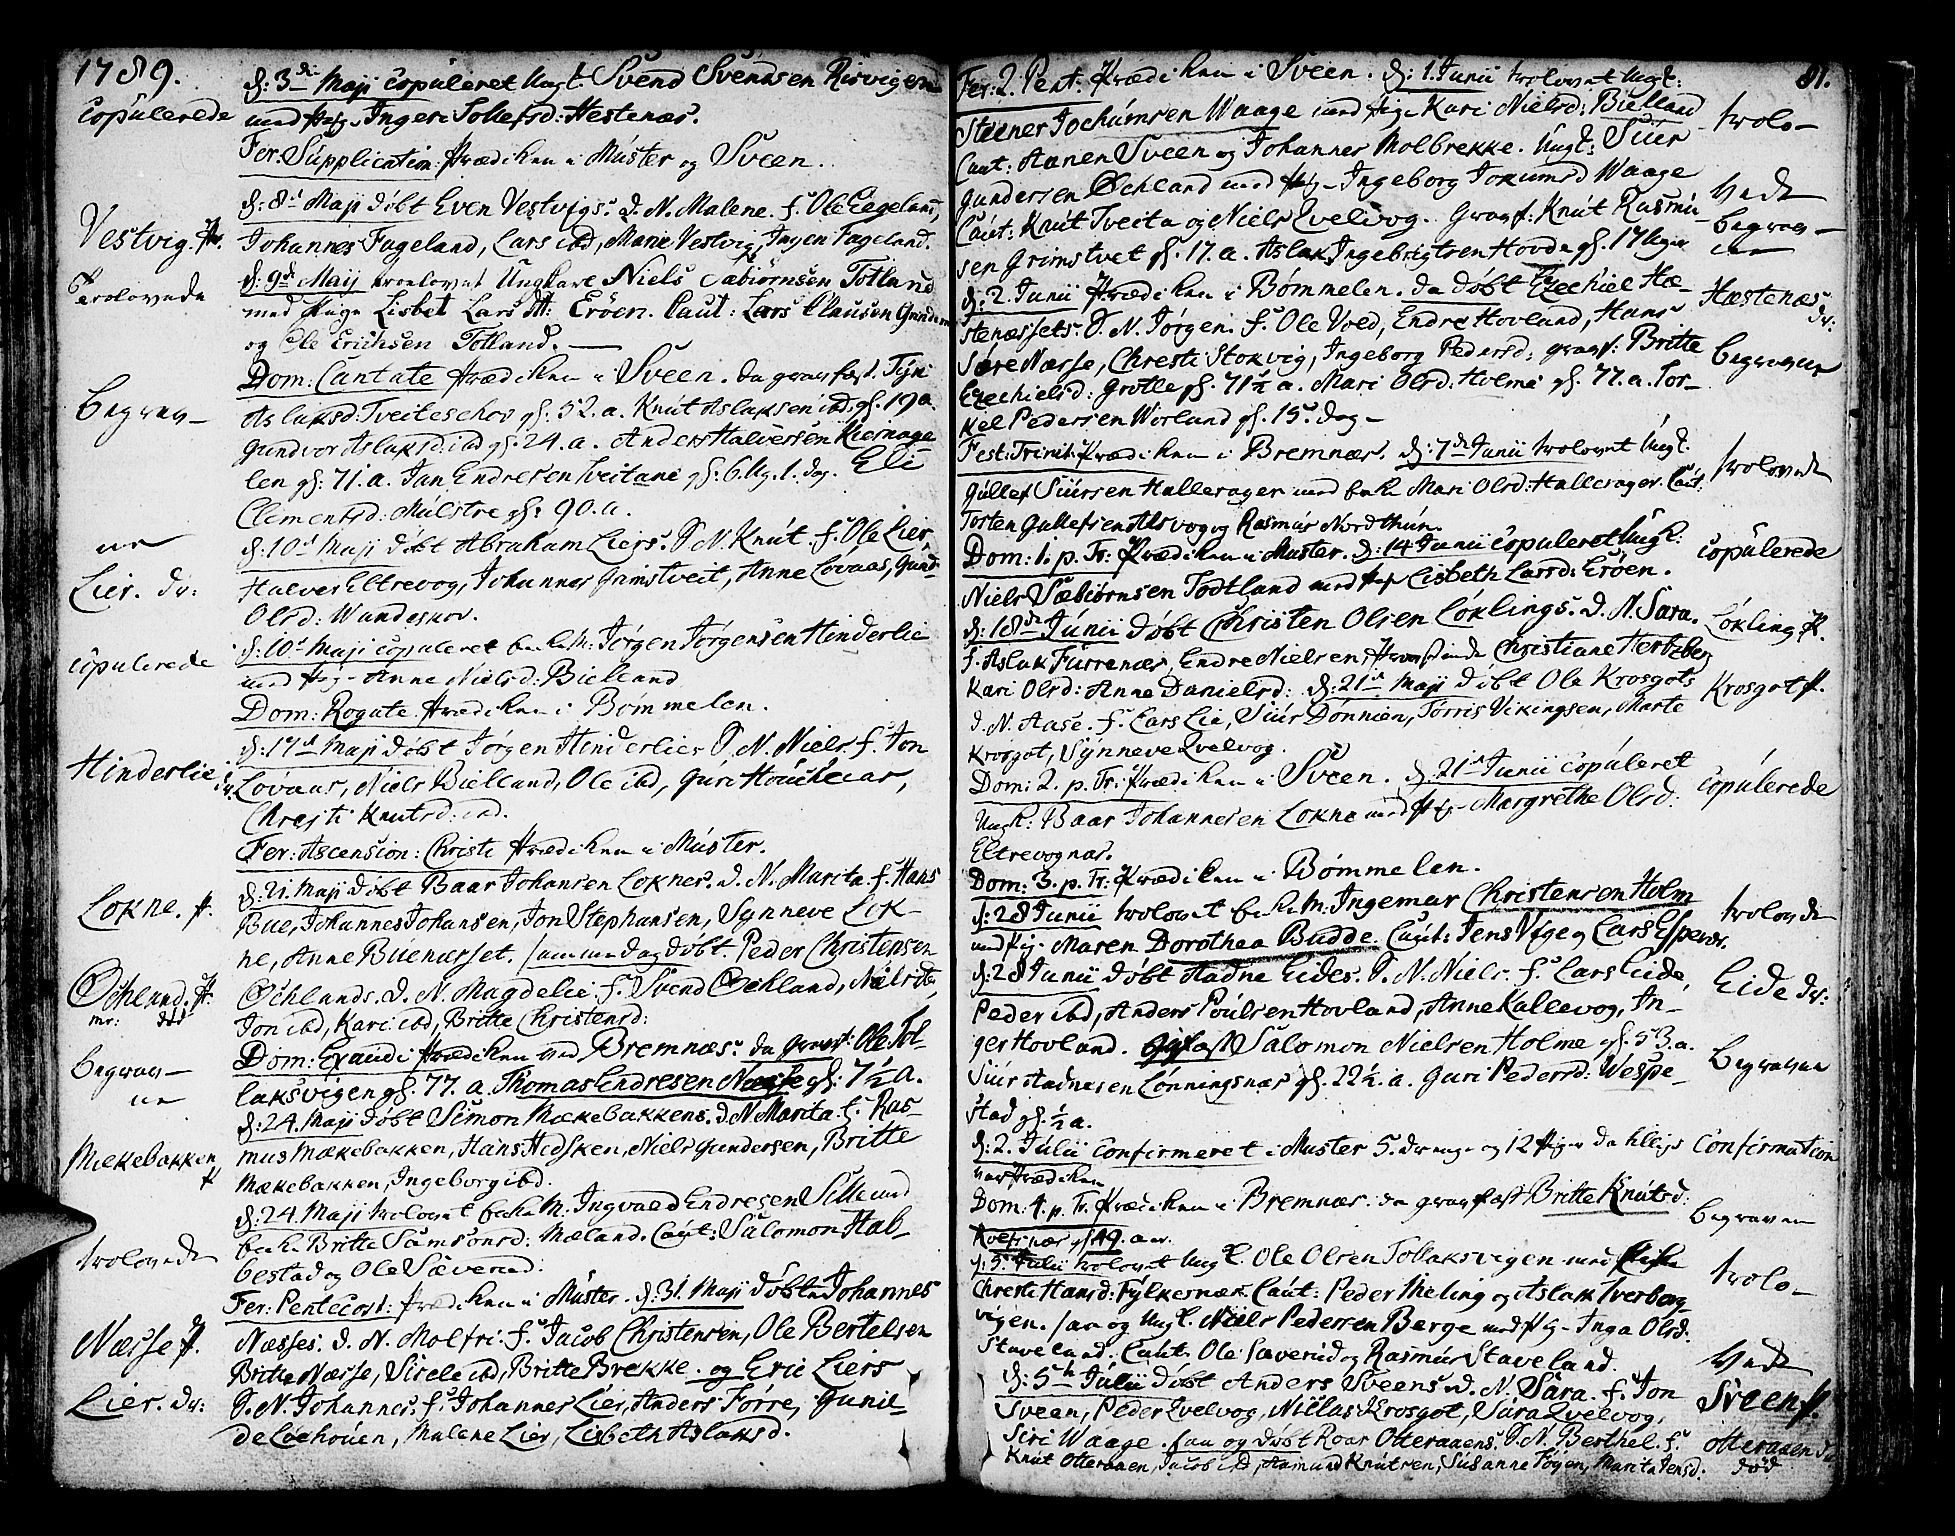 1789.
copulerede
d: 3die Maji copuleret Ungk. Svend Svendsen Risvigen
med Pig. Inger Tollefsd: Hestenæs.
Fer. Supplication: Prædiken i Muster og Sveen.
Vestvig. P.
d: 8de Maji døbt Even Vestvigs. D. N. Malene. f. Ole Eegeland,
Johannes Fageland, Lars ibd, Marie Vestvig, Ingen Fageland.
Trolovede
d: 9de Maij troelovet Ungkarl Niels Sæbiörnsen Totland
med Pige Lisbet Lars Dtt: Eröen. Caut: Lars Clausen
og Ole Erichsen Totland.
Dom: Cantate Prædiken i Sveen. da gravfæst.
Begrav-
Aslaksd. Tveiteschov gl. 52. a. Knut Aslaksen ibd. gl. 19 a.
Gundvor Aslaksd: ibd gl. 24. a. Anders Halversen Kiernage-
len gl: 71. a. Jan Endresen Tveitane gl: 6. Ug. 1. dag. Eli
Clementsd: Mülstre gl: 90. a.
ne
d: 10de Maji døbt Abraham Liers. D. N. Knut. f. Ole Lier,
Lier. dr:
Halver Eltrevog, Johannes Grimstveit, Anne Lövaas,
Olsd: Wandeskov.
copulerede
d: 10de Maji copuleret Jørgen Jørgensen Hinderlie
med Pig. Anne Nielsd: Bielland
Dom: Rogate Prædiken i Bømmelen.
Hinderlie dr.
d: 17de Maji døbt Jørgen Hinderlies D. N. Niels. f. Jon
Lövaas, Niels Bielland, Ole ibd, Guri
Christi Knutsd: ibd.
Fer: Ascension: Christi Prædiken i Muster.
Lokne. P.
d: 21. Maji døbt Baar Johansen Loknes. D. N. Marita. f. Hans
Bue, Johannes Johansen, Jon Stephansen, Synneve Lok-
ne, Anne Büenæsset. samme dag døbt Peder Christensen
Öchland. P.
mr: død
Öchlands. D. N. Magdelie f. Svend Öchland, Niels
Jon ibd, Kari ibd, Britte Christensd:
Begrav-
ne
Dom: Exaudi Prædiken ved Bremnæs. da gravf: Ole Tol-
laksvigen gl. 77. a. Thomas Endresen Næsse gl: 7½ a.
Mækebakken
d: 24. Maji døbt Simon Mækebakkens. D. N. Marita f. Ras-
mus Mækebakken, Hans Hidsken, Niels Gundersen, Britte
Mækebakken, Ingeborg ibd.
trolovede
d: 24. Maji trolovet Ingvald Endresen
Britte Samsonsd: Mæland. Caut: Salomon Hab-
bestad og Ole Sæverud.
Fer: Pentecost: Prædiken i Muster. d: 31. Maji døbt Johannes
Næsse P.
Næsses. D. N. Molfri. f. Jacob Christensen, Ole Bertelsen
Britte Næsse, Sicele ibd, Britte Brekke. og Eric Liers
Lier. dr:
D. N. Johannes. f. Johannes Lier, Anders Førre, Gunil-
de Liehouen, Malene Lier, Lisbeth Aslaksd.
91.
Fer: 2. Pent. Prædiken i Sveen. d: 1. Junii trolovet Ungk:
trolo-
Steener Jochumsen Waage med Pige Kari Nielsd: Bielland
Caut: Aanen Sveen og Johannes Molbrekke. Ungk: Siur
vede
Gundersen Öchland med Pig. Ingeborg Jokumsd Waage
Caut: Knut Tveita og Niels Qvelvog. Gravf: Knut Rasmu-
begrav-
ne
sen Grimstvet gl. 17. a. Aslak Ingebrigtsen Hovda gl. 17 Uger
Hæstenæs
dr:
d: 2. Junii Prædiken i Bømmelen. da døbt Ezechiel Hæ-
stenæssets. D. N. Jørgen. f. Ole Vold, Endre Hovland, Hans
Begravne
Sære Næsse, Christi Stokvig, Ingeborg Pedersd: gravf: Britte
Ezechielsd: Grotle gl. 71½ a. Mari Olsd: Holme gl. 77. a. Tor-
kel Pedersen Worland gl. 15. dag-
trolovede
Fest: Trinit: Prædiken i Bremnæs. d: 7de Junii trolovet Ungk.
Gullef Siursen Hallerager med Mari Olsd: Hallerager. Caut:
Torsten Gullefsen Alsvog og Rasmus Nordthun.
copulerede
Dom: 1. p. Tr: Prædiken i Muster. d: 14 Junii copuleret Ungk:
Niels Sæbiørnsen Todtland med Pig. Lisbeth Larsd: Eröen.
Løkling P.
d: 18de Junii døbt Christen Olsen Løklings. D. N. Sara.
f. Aslak Furrenæs, Endre Nielsen, Christiane Hertzberg
Krosgot P.
Kari Olsd: Anne Danielsd: d: 21de Maji døbt Ole Krosgots
D. N. Aase. f. Lars Lie, Siur Dönnien, Torris Vikingsen, Marte
Krosgot, Synneve Qvelvog.
copulerede
Dom: 2. p. Tr: Prædiken i Sveen. d. 21de Junii copuleret
Ungk: Baar Johannesen Lokne med Pig. Margrethe Olsd:
Eltrevognæs.
Dom: 3. p. Tr: Prædiken i Bømmelen.
trolovede
d: 28 Junii trolovet Ingemar Christensen Holm
med Pig. Maren Dorothea Budde. Caut: Jens Vige og Lars Espevær.
Eide dr:
d: 28 Junii døbt Hadne Eides. D. N. Niels. f. Lars Eide,
Peder ibd, Anders Poulsen Hovland, Anne Kallevog, In-
Begravne
ger Hovland. Salomon Nielsen Holme gl. 53. a.
Siur Aadnesen Lönningsnæs gl. 22½. a. Guri Pedersd: Wespe-
stad gl. ½ a.
Confirmation
d: 2. Julii Confirmeret i Muster 5. drenge og 12 Piger da tillige
var Prædiken
Begraven
Dom: 4. p. Tr. Prædiken i Bremnæs. da gravfæst Britte Knutsd:
gl. 49. aar.
trolo-
d. 5te Julii trolovet Ungk. Ole Olsen Tollaksvigen med
Christi Hansd: Fylkesnæs. Caut: Peder Theling og Aslak Tverborg-
vigen. saa og Ungk. Niels Pedersen Berge med Pig. Inga Olsd:
vede
Staveland. Caut. Ole Sæverud og Rasmus Staveland.
Sveen P.
d: 5te Julii døbt Anders Sveens. D. N. Sara. f. Jon
Sveen, Peder Qvelvog, Niclas Krosgot, Sara Qvelvog,
Otteraaen dr.
død
Siri Waage. saa og døbt Roar Otteraaens. D. N. Berthel. f.
Knut Otteraaen, Jacob ibd, Aamund Knutsen, Susanne Fögen, Marita Jensd.